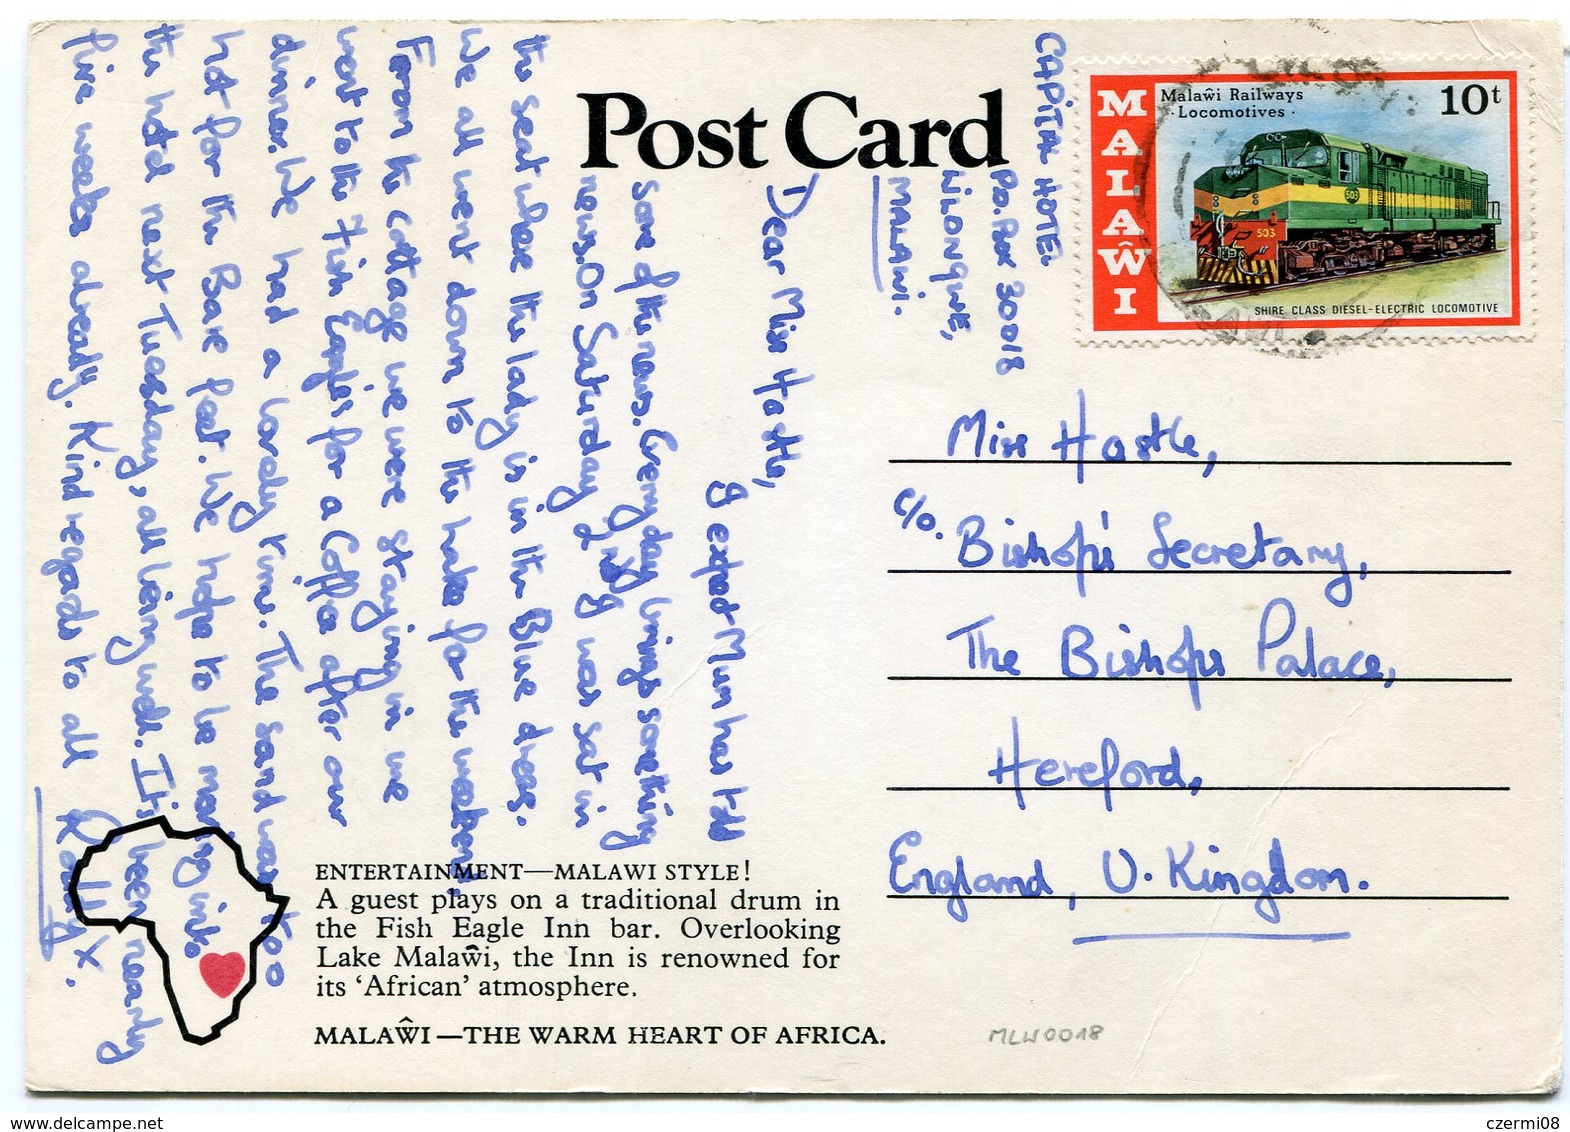 Post Card
CAPITAL HOTEL
P.O. Box 30018
LILONGWE,
MALAWI.
Dear Miss Hastle,
I expect Mum has told
some of the news. Every day brings something
news. On Saturday I was sat in
the seat where the lady is in the Blue dress.
We all went down to the lake for the weekend.
From the cottage we were staying in we
went to the Fish Eagles for a Coffee after our
dinner. We had a lovely time. The sand was too
hot for the Bare feet. We hope to be moving into
the hotel next Tuesday, all being well. It's been nearly
five weeks already. Kind regards to all
x.
MALAŴI
Malaŵi Railways
·Locomotives·
10t
503
503
SHIRE CLASS DIESEL-ELECTRIC LOCOMOTIVE
Miss Hastle,
c/o. Bishop's Secretary,
The Bishops Palace,
Hereford,
England, U. Kingdom.
ENTERTAINMENT—MALAWI STYLE!
A guest plays on a traditional drum in
the Fish Eagle Inn bar. Overlooking
Lake Malaŵi, the Inn is renowned for
its ‘African’ atmosphere.
MALAŴI—THE WARM HEART OF AFRICA.
MLW0018
www.delcampe.net
czermi08